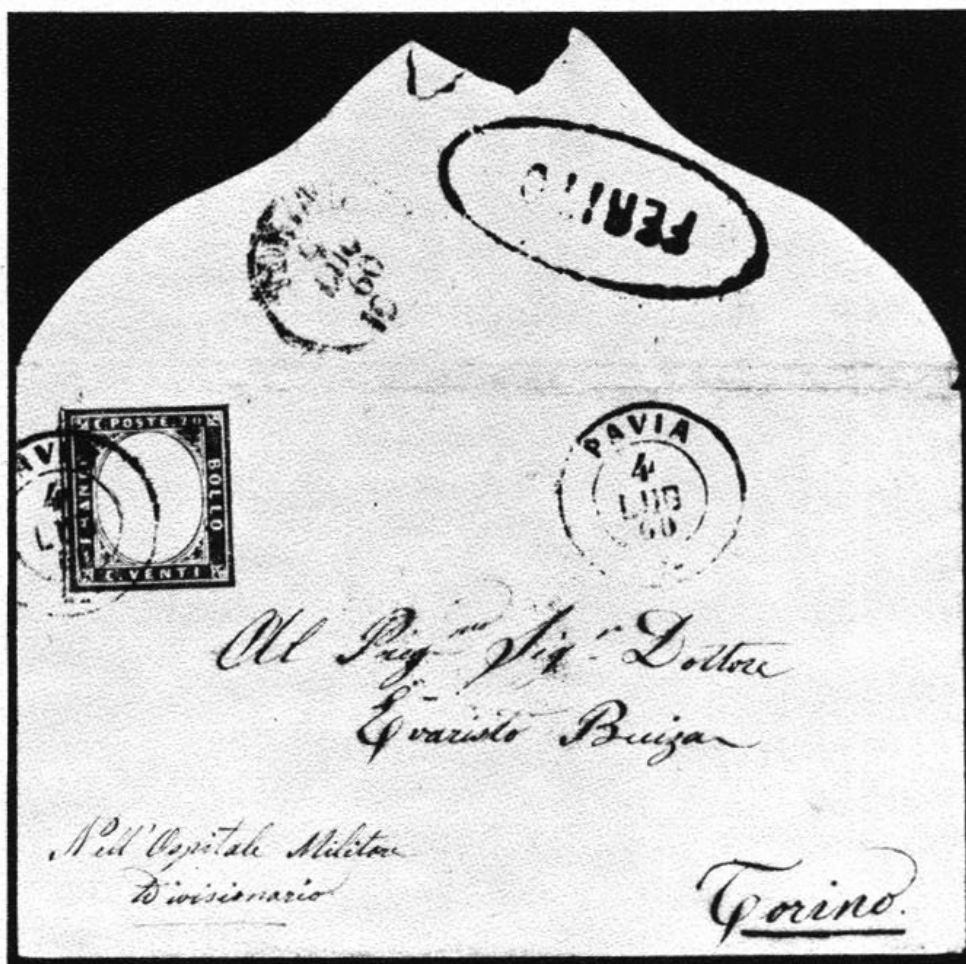 FERITO
5
LUG
60
C. POSTE 20
BOLLO
C. VENTI
PAVIA
4
LUG
60
AV
4
LU
Al Preg.mo Sig.r Dottore
Evaristo
Nell'Ospitale Militare
Divisionario
Torino.